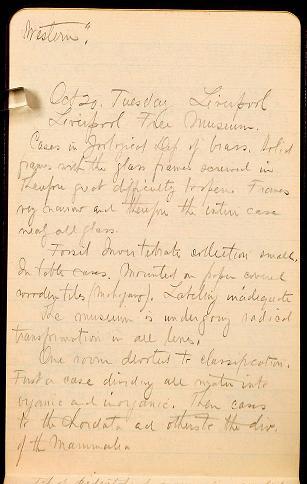 Western".
Oct 20. Tuesday Liverpool
Liverpool Free Museum.
Cases in Zoological Dep of brass. Solid
frames with the glass frames screwed in
Therefore great difficulty to open. Frames
very narrow and therefore the entire case
nearly all glass.
Fossil Invertebrate collection small.
In table cases. Mounted on paper covered
wooden tiles (mahogany). Labeling inadequate
The museum is undergoing radical
transformation in all lines.
One room devoted to classification.
First a case dividing all matter into
organic and inorganic. Then cases
to the Chordata and others to the div.
of the Mammalia